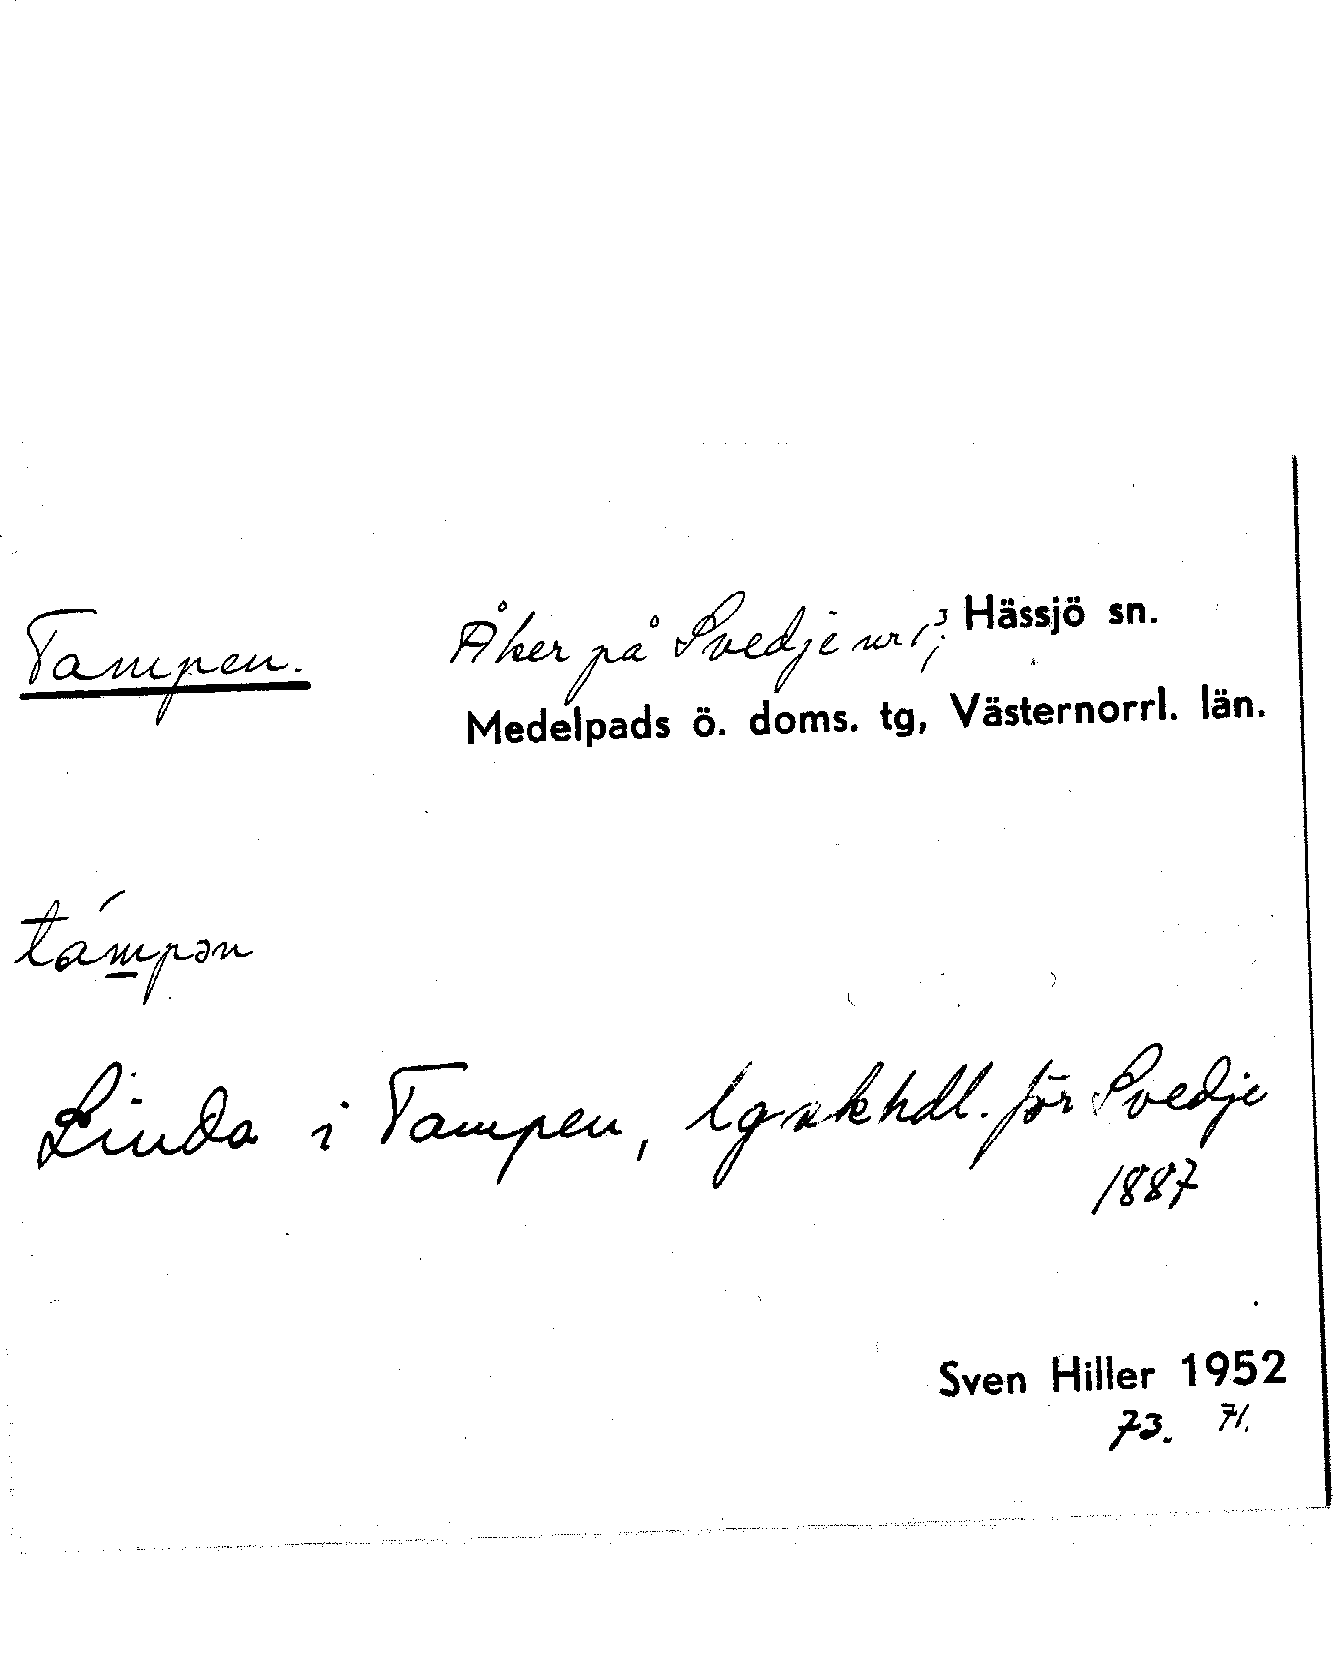 Tampen. Åker på Svedje nr 1³; Hässjö sn.
Medelpads ö. doms. tg, Västernorrl. län.
támpən
Linda i Tampen, lgskhdl. för Svedje
1887
Sven Hiller 1952
73. 71.